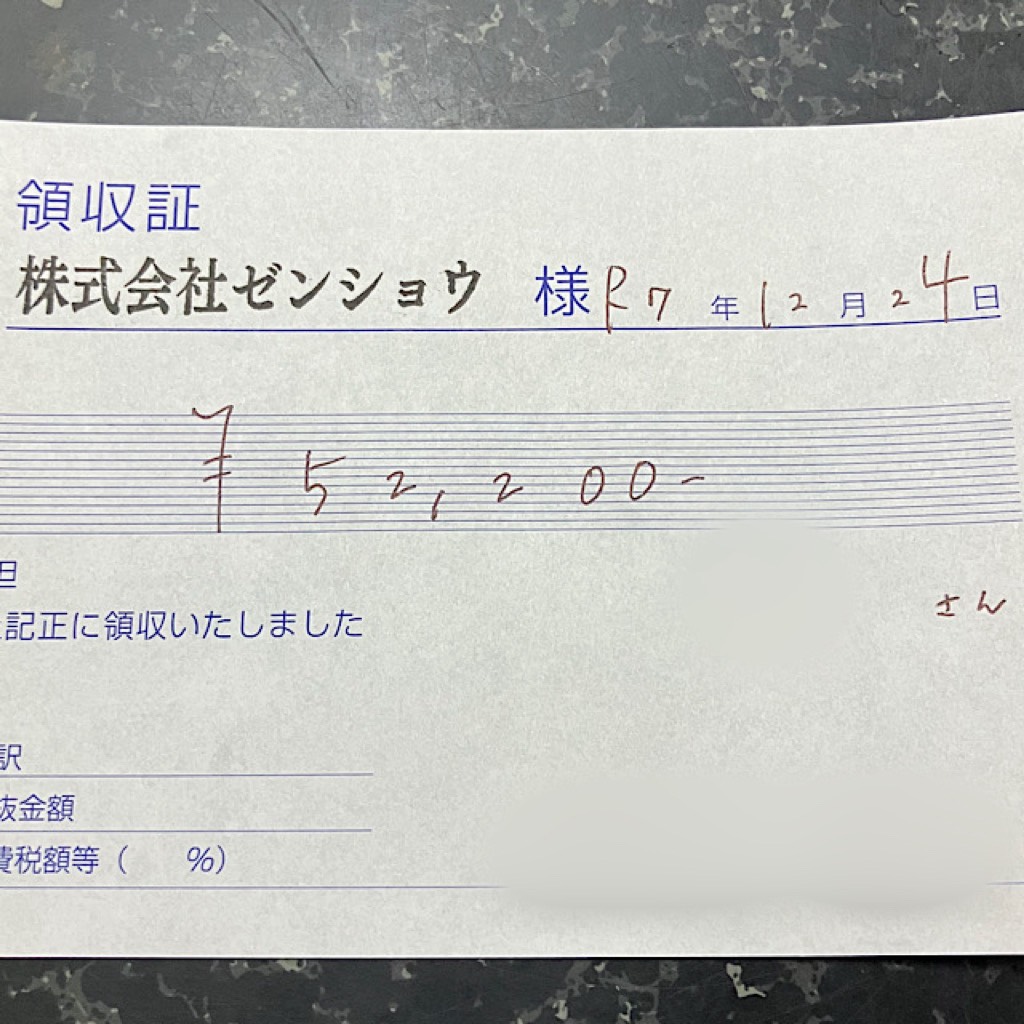 領収証
株式会社ゼンショウ 様 R7年12月24日
¥52,200-
さん
記正に領収いたしました
訳
抜金額
費税額等（　　%）